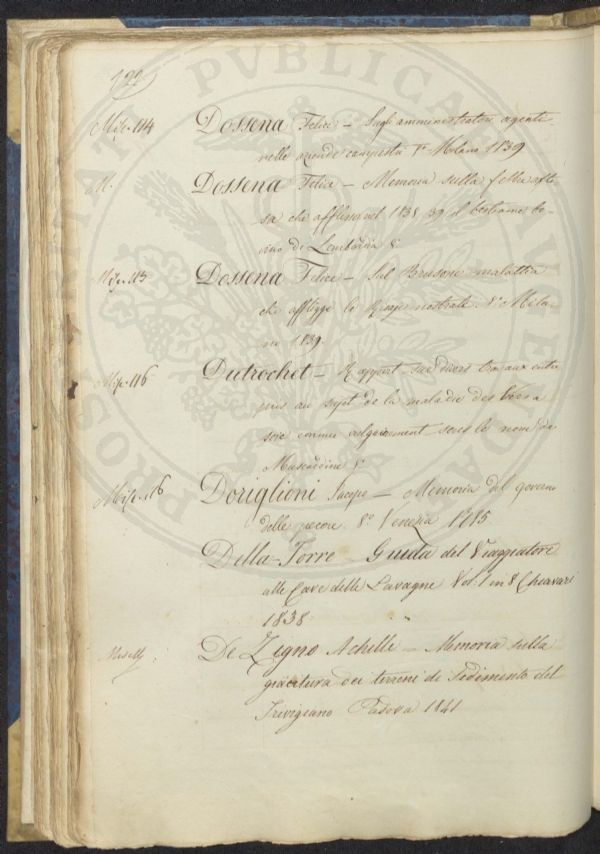 Misc. 114 Dossena Felice – Sugli amministratori agenti
nelle aziende campestri 8° Milano 1839
M. Dossena Felice – Memoria sulla febbre afto-
sa che afflisse nel 1838 39 il bestiame bo-
vino di Lombardia 8°
Misc. 115 Dossena Felice – Sul Brusone malattia
che affligge le Risaje nostrate. 8° Mila-
no 1839.
Misc. 116 Dutrochet – Rapport sur divers travaux entre
pris au sujet de la maladie des Vers a
soie connue vulgairement sous le nom de
Muscardine 8°
Misc. 116 Doriglioni Jacopo – Memoria del governo
delle pecore. 8° Venezia 1785
Della-Torre – Guida del Viaggiatore
alle Cave delle Lavagne Vol. 1 in 8 Chiavari
1838
Miscell. De Zigno Achille – Memoria sulla
giacitura dei terreni di Sedimento del
Trevigiano Padova 1841
PROSPERITATI PUBLICAE